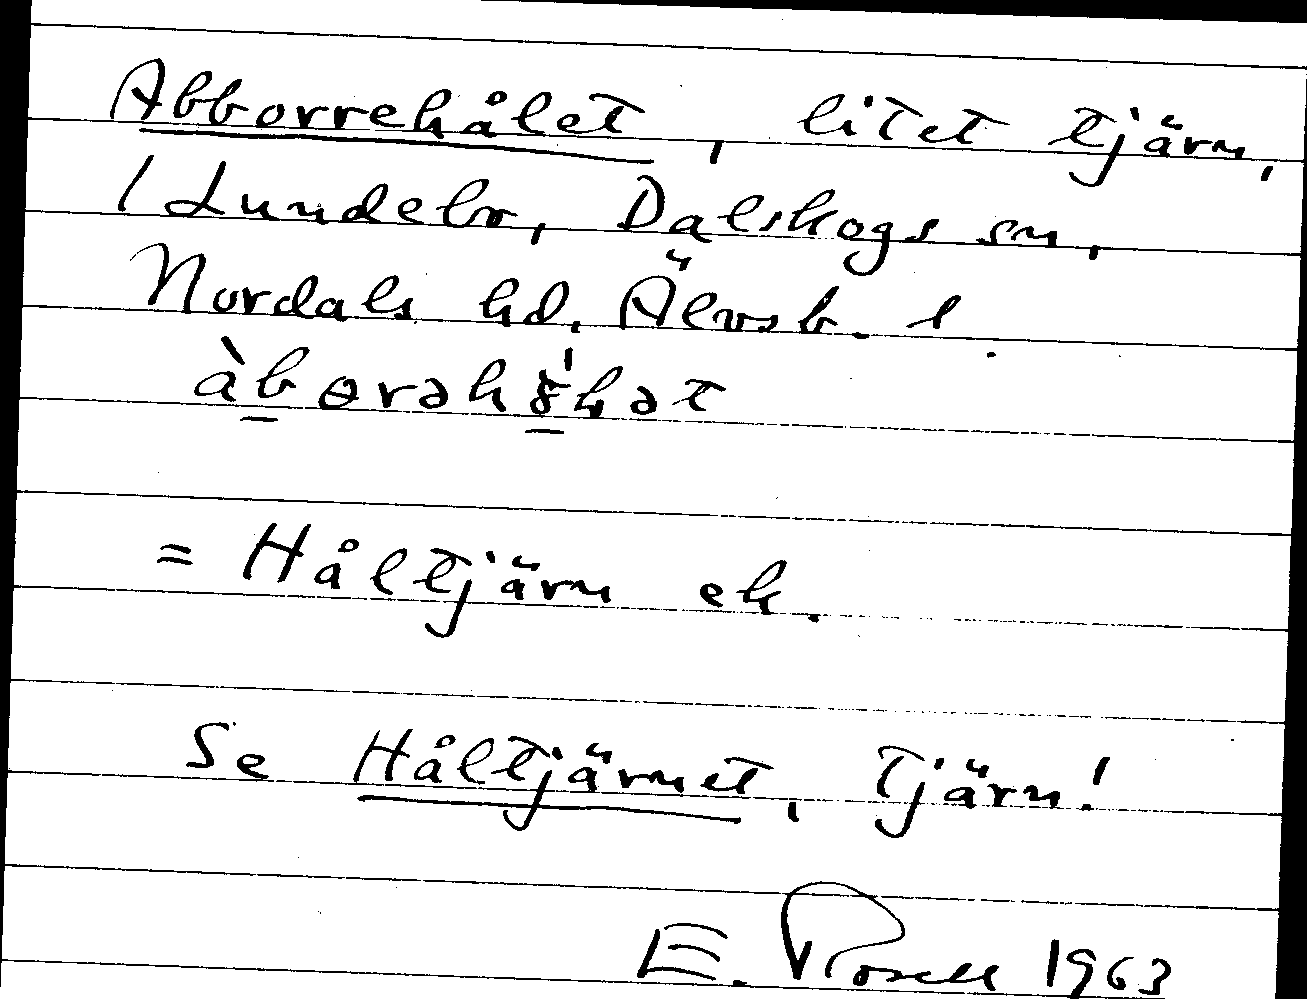 Abborrehålet, litet tjärn,
1 Lundebr, Dalskogs sn,
Nordals hd, Älvsb. l.
= Håltjärn ek.
Se Håltjärnet, tjärn!
E. Rosell 1963